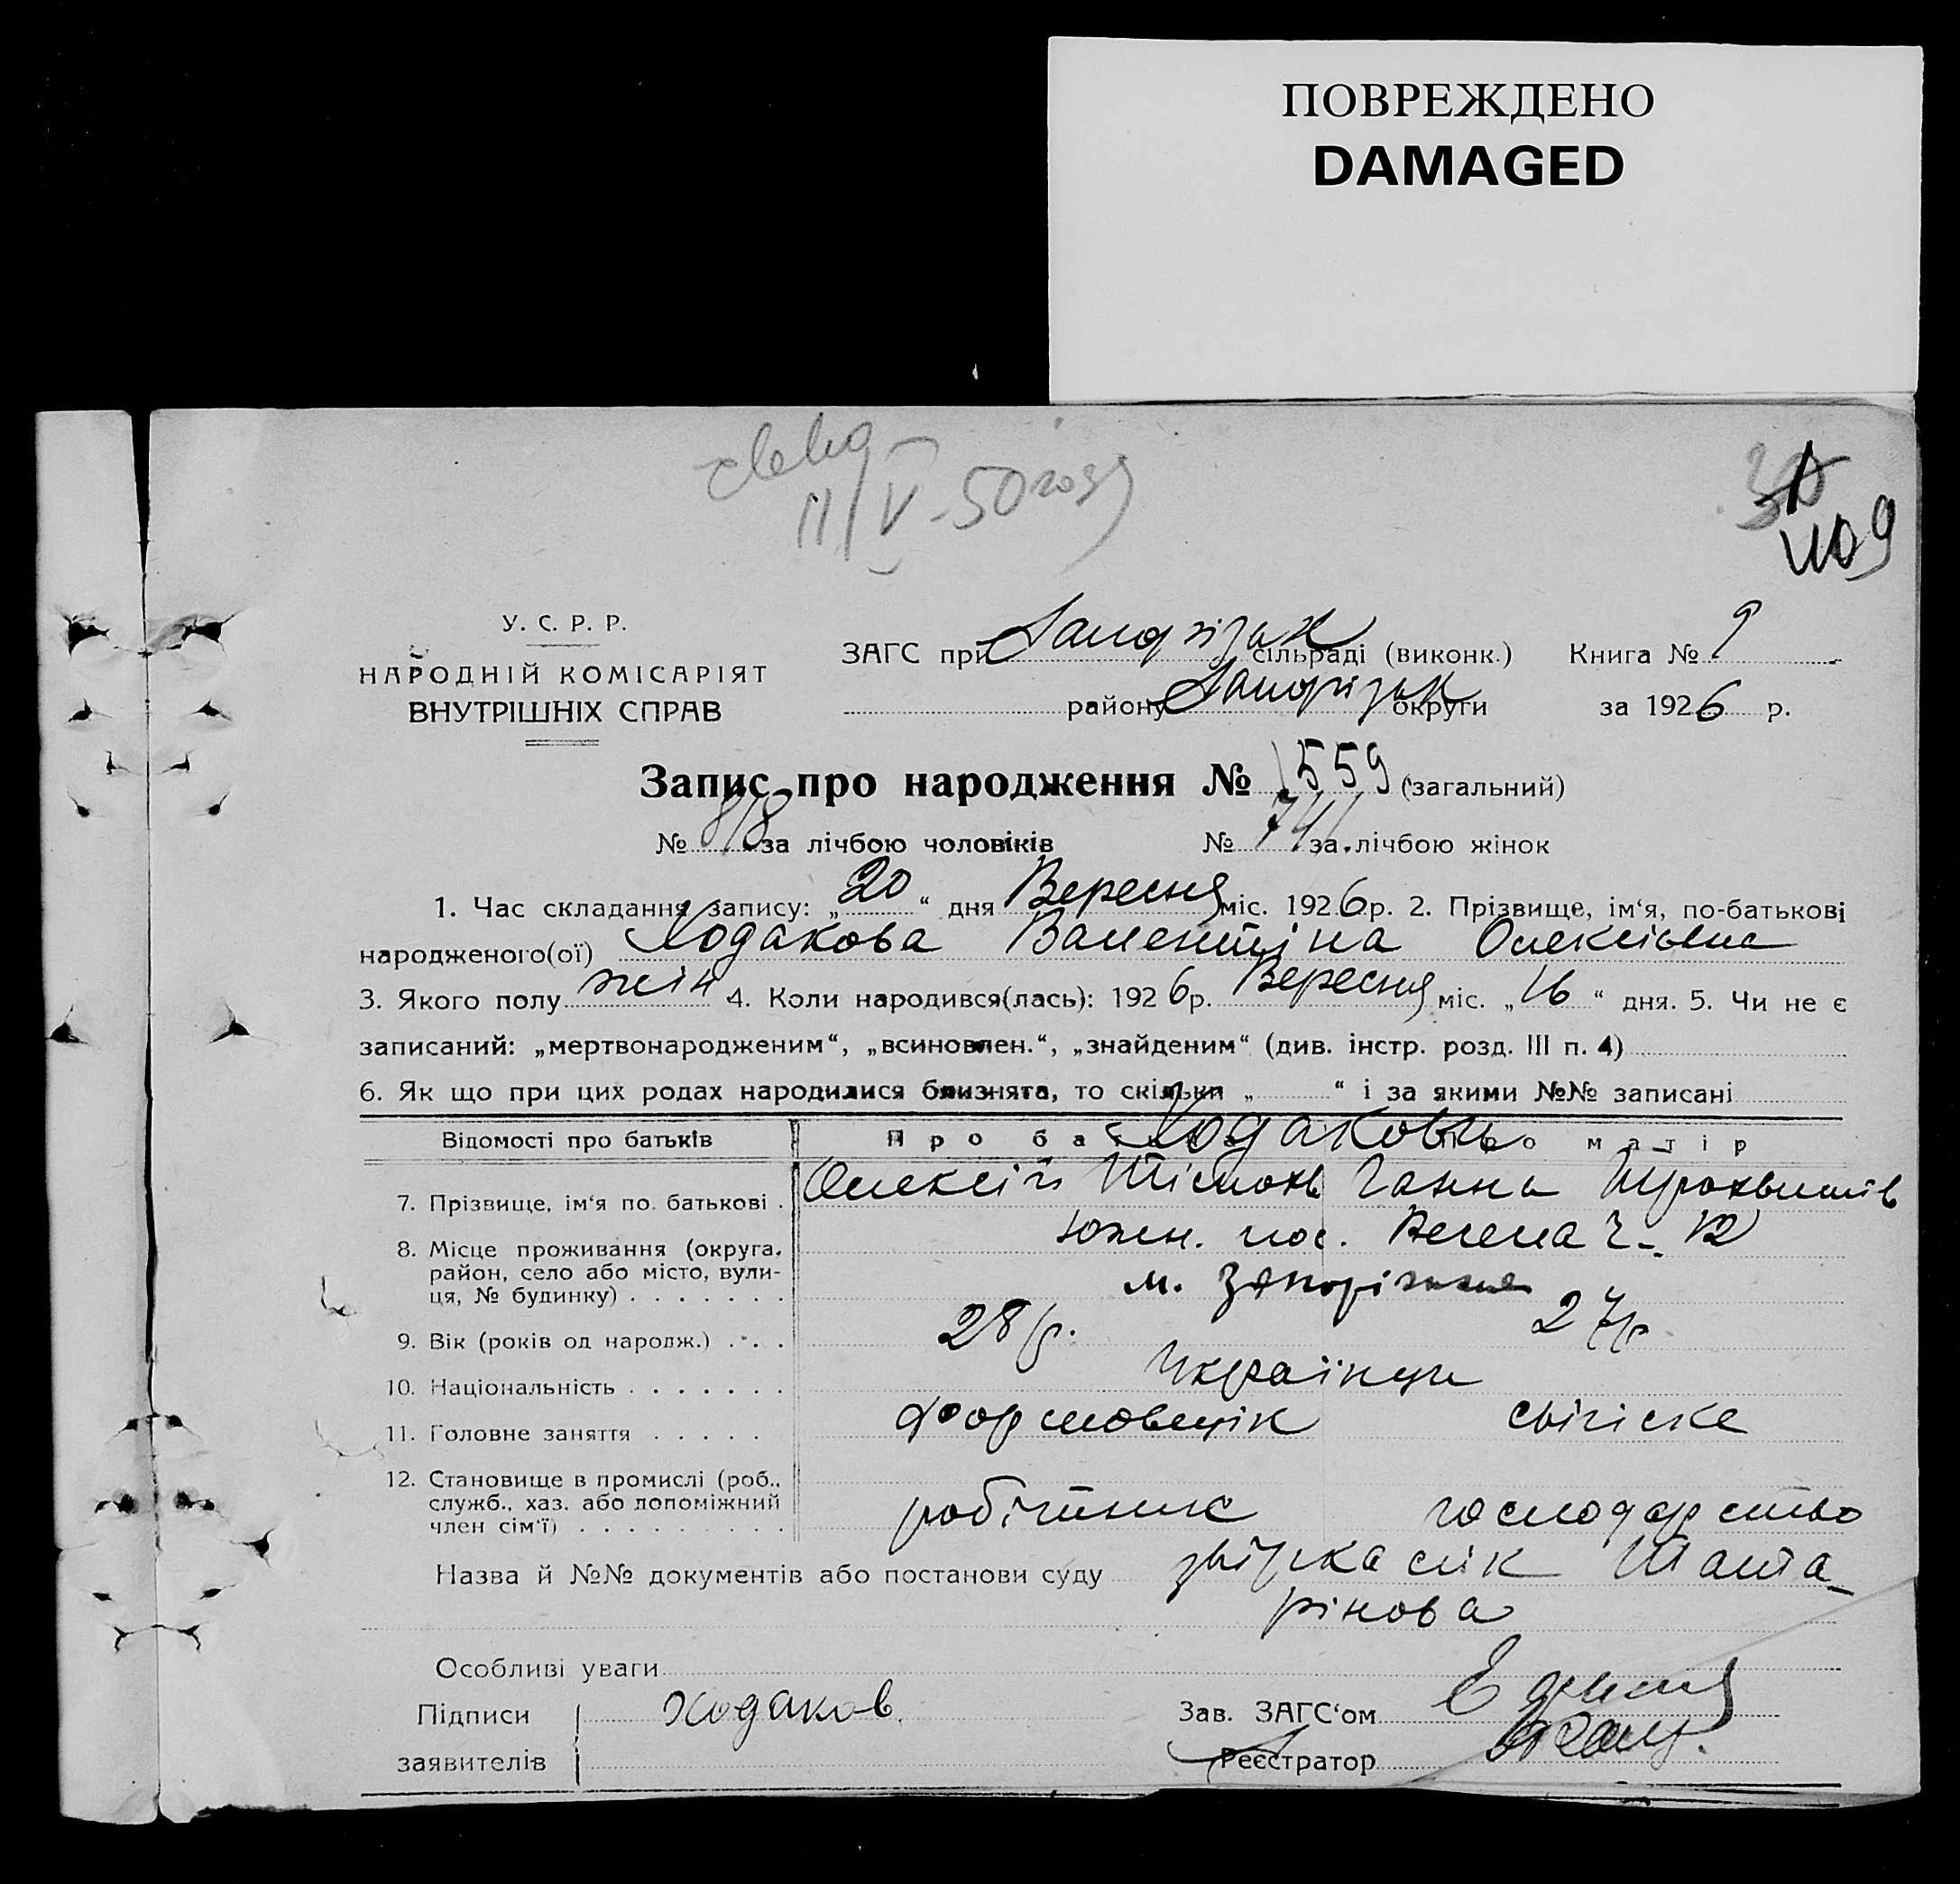 ПОВРЕЖДЕНО
DAMAGED
II/V-50 году
1109
У. С. Р. Р.
НАРОДНІЙ КОМІСАРІЯТ
ВНУТРІШНІХ СПРАВ
ЗАГС при Запорізьк сільраді (виконк.) Книга № 9
району Запорізьк округи за 1926 р.
Запис про народження № 1559 (загальний)
№ 818 за лічбою чоловіків № 741 за лічбою жінок
1. Час складання запису: „20“ дня Вересня міс. 1926 р. 2. Прізвище, ім‘я, по-батькові
народженого(ої) Ходакова Валентіна Олексіевна
3. Якого полу жін 4. Коли народився(лась): 1926 р. Вересня міс. „16“ дня. 5. Чи не є
записаний: „мертвонародженим“, „всиновлен.“, „знайденим“ (див. інстр. розд. III п. 4)
6. Як що при цих родах народилися близнята, то скільки „ “ і за якими №№ записані
Відомості про батьків Про ба Ходаковы про матір
7. Прізвище, ім‘я по батькові . Олексій Тімохв Ганна
8. Місце проживання (округа, район, село або місто, вулиця, № будинку) . . . . . . . Южн. пос. 12
м. Запоріжжя
9. Вік (років од народж.) . . . 28 р. 27 р
10. Національність . . . . . . . Українци
11. Головне заняття . . . . . формовщік
12. Становище в промислі (роб., служб., хаз. або допоміжний член сім‘ї) . . . . . . . . . робітник господарство
Назва й №№ документів або постанови суду
рінова
Особливі уваги
Підписи Ходаков Зав. ЗАГС‘ом
заявителів Реєстратор